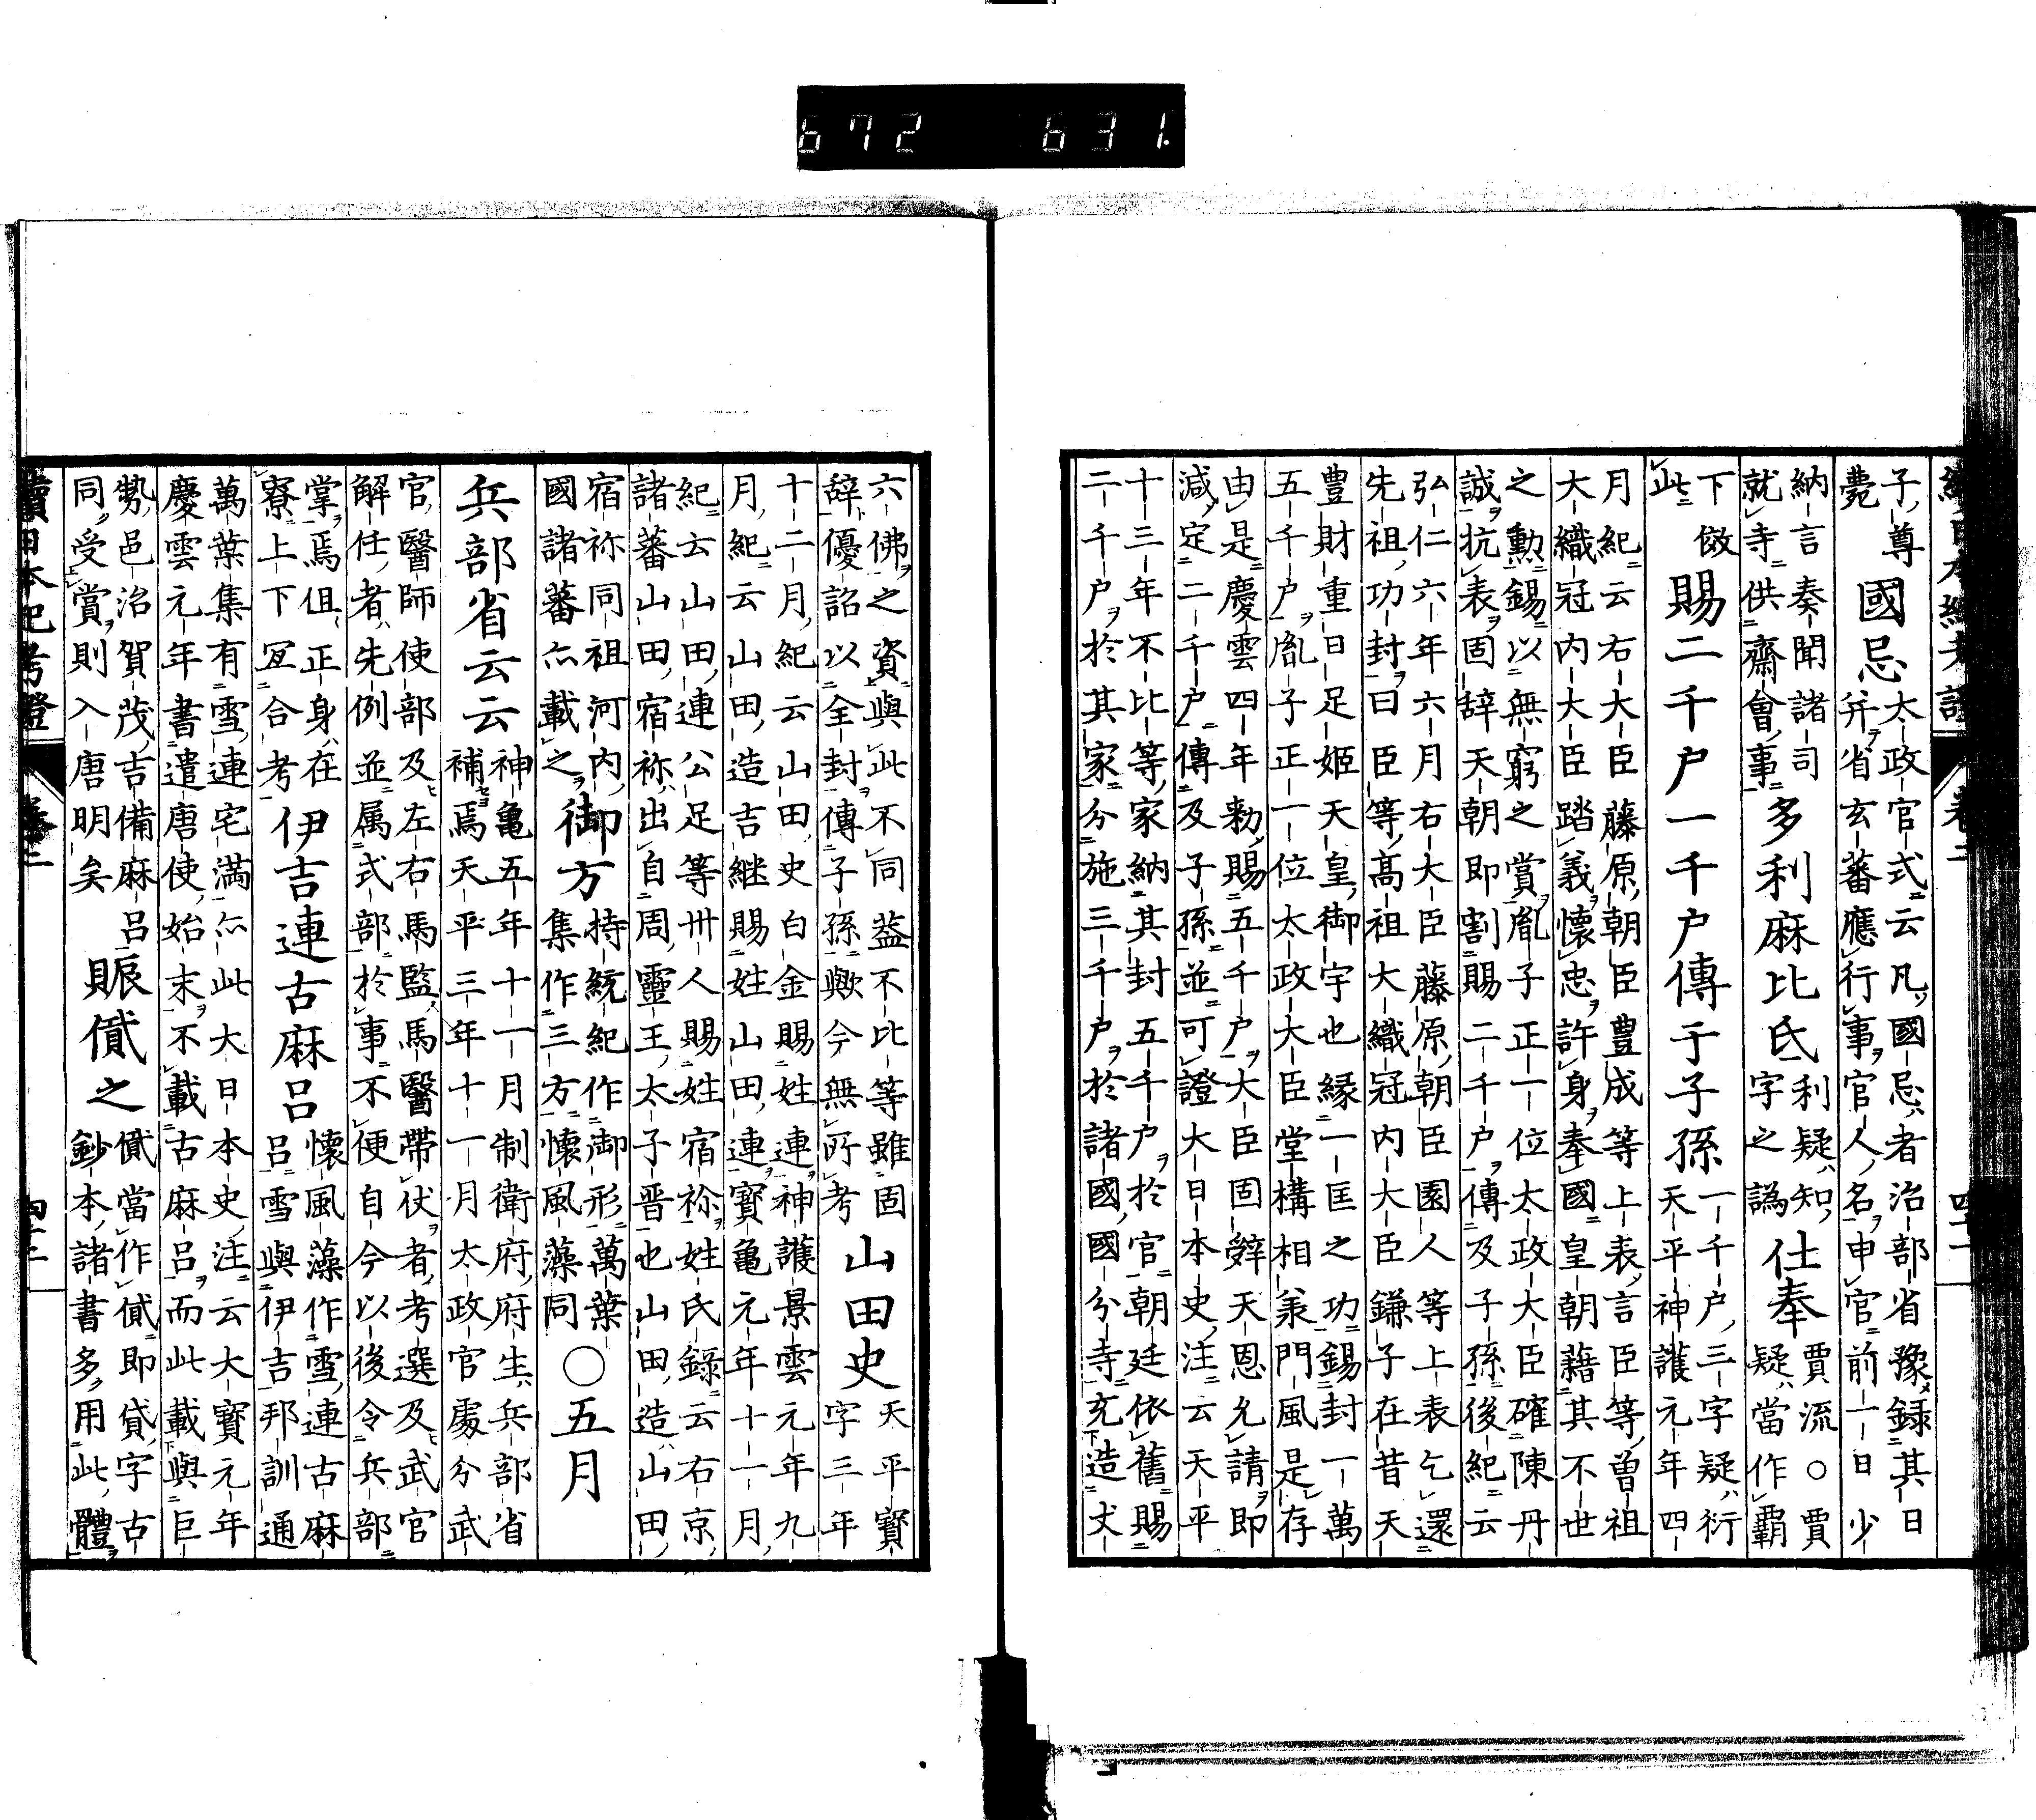 672 631.
子尊
薨
國忌
太政官式云凡國忌者治部省豫錄其日
并省玄蕃應行事官人名申官前一日少
納言奏聞諸司
就寺供齋會事
多利麻比氐
利疑知
字之譌
仕奉
賈流○賈
疑當作覇
下倣
此
賜二千戸一千戸傳于子孫
一千戸三字疑衍
天平神護元年四
月紀云右大臣藤原朝臣豊成等上表言臣等曾祖
大織冠内大臣踏義懷忠許身奉國皇朝藉其不世
之勳錫以無窮之賞胤子正一位太政大臣確陳丹
誠抗表固辞天朝即割賜二千戸傳及子孫後紀云
弘仁六年六月右大臣藤原朝臣園人等上表乞還
先祖功封曰臣等高祖大織冠内大臣鎌子在昔天
豊財重日足姬天皇御宇也縁一匡之功錫封一萬
五千戸胤子正一位太政大臣堂構相兼門風是存
由是慶雲四年勅賜五千戸大臣固辤天恩允請即
減定二千戸傳及子孫並可證大日本史注云天平
十三年不比等家納其封五千戸於官朝廷依舊賜
二千戸於其家分施三千戸於諸國國分寺充造丈
六佛之資與此不同葢不比等雖固
辞優詔以全封傳子孫歟今無所考
山田史
天平寳
字三年
十二月紀云山田史白金賜姓連神護景雲元年九
月紀云山田造吉継賜姓山田連寳亀元年十一月
紀云山田連公足等卅人賜姓宿祢姓氏錄云右京
諸蕃山田宿祢出自周靈王太子晋也山田造山田
宿祢同祖河内
國諸蕃亦載之
御方
持統紀作御形萬葉
集作三方懷風藻同
○五月
兵部省云云
神亀五年十一月制衛府府生兵部省
補焉天平三年十一月太政官處分武
官醫師使部及左右馬監馬醫帶仗者考選及武官
解任者先例並属式部於事不便自今以後令兵部
掌焉但正身在
寮上下冝合考
伊吉連古麻呂
懷風藻作雪連古麻
呂雪與伊吉邦訓通
萬葉集有雪連宅満亦此大日本史注云大寳元年
慶雲元年書遣唐使始末不載古麻呂而此載與巨
勢邑治賀茂吉備麻呂
同受賞則入唐明矣
賑貸之
貸當作貣即貸字古
鈔本諸書多用此體